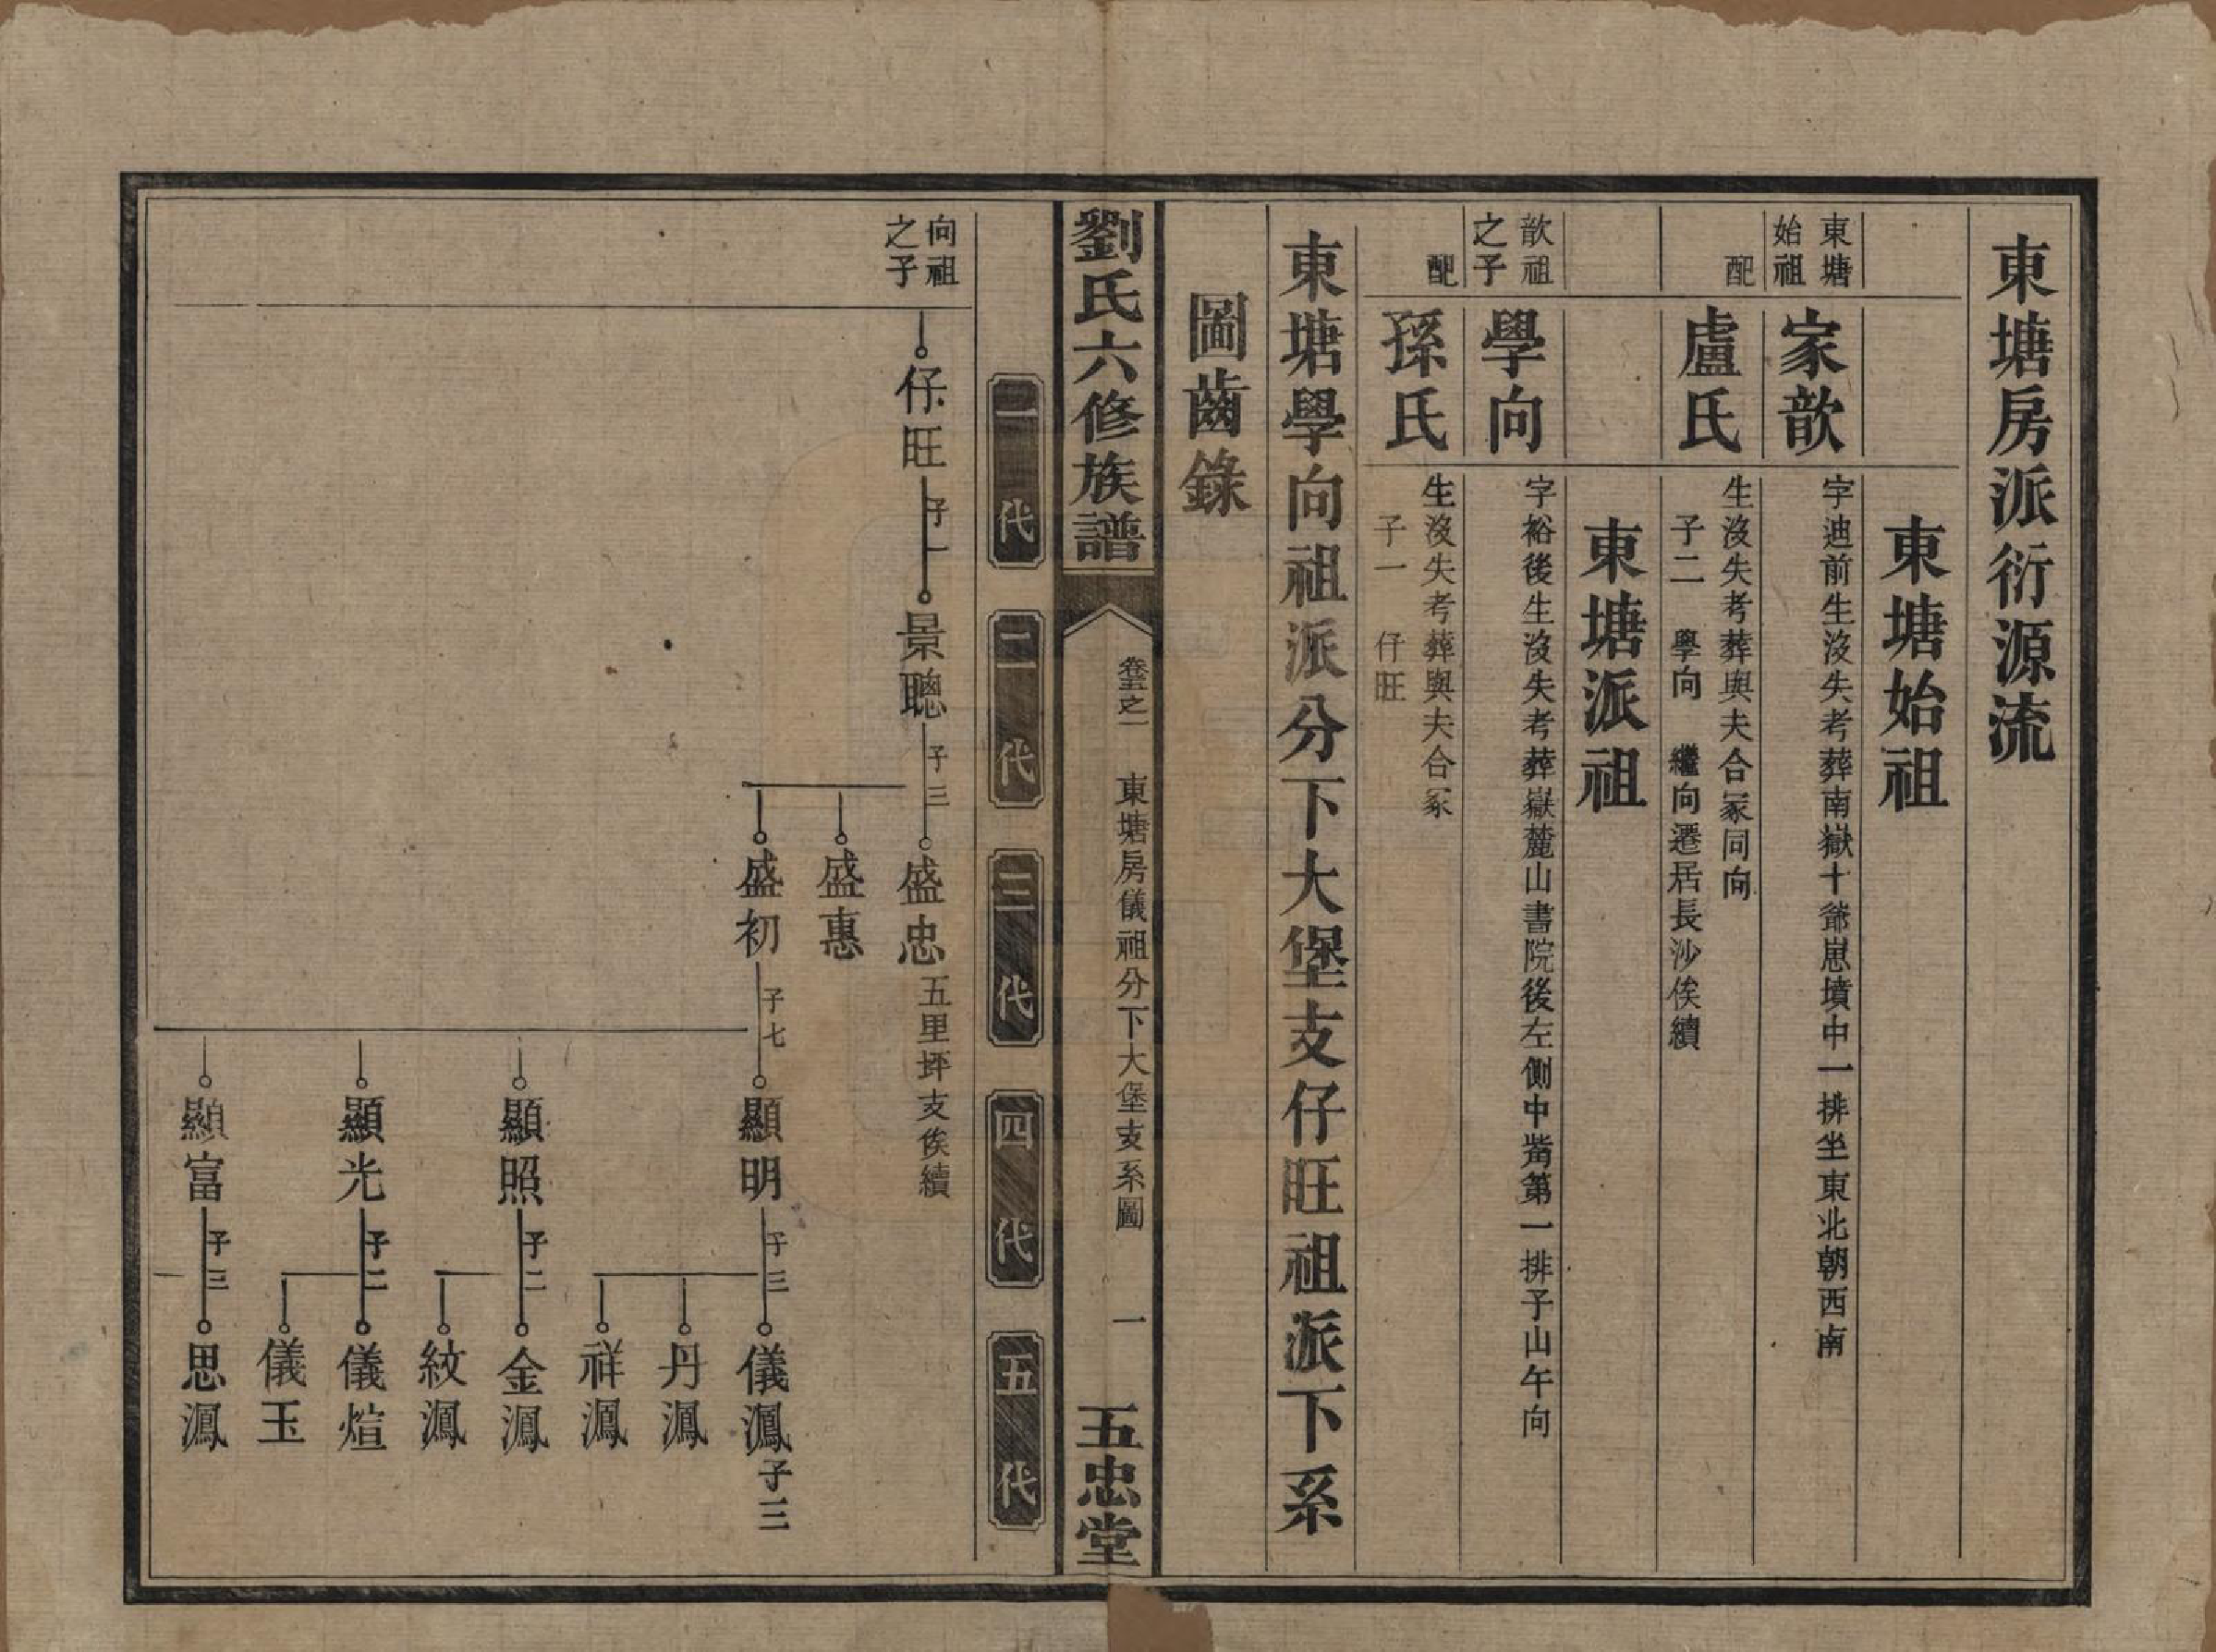 東塘房派衍源流
東塘始祖
東塘
始祖
家歆
字迪前生沒失考葬南嶽十爺崽墳中一排坐東北朝西南
配
盧氏
生沒失考葬與夫合冢同向
子二　學向　繼向遷居長沙俟續
東塘派祖
歆祖
之子
學向
字裕後生沒失考葬嶽麓山書院後左側中嵴第一排子山午向
配
孫氏
生沒失考葬與夫合冢
子一　仔旺
東塘學向祖派分下大堡支仔旺祖派下系
圖齒錄
劉氏六修族譜
卷之一
東塘房儀祖分下大堡支系圖
一
五忠堂
一代
二代
三代
四代
五代
向祖
之子
仔旺
子一
景聰
子三
盛忠
五里坪支俟續
盛惠
盛初
子七
顯明
子三
儀鳳
子三
丹鳳
祥鳳
顯照
子二
金鳳
紋鳳
顯光
子二
儀煊
儀玉
顯富
子三
思鳳